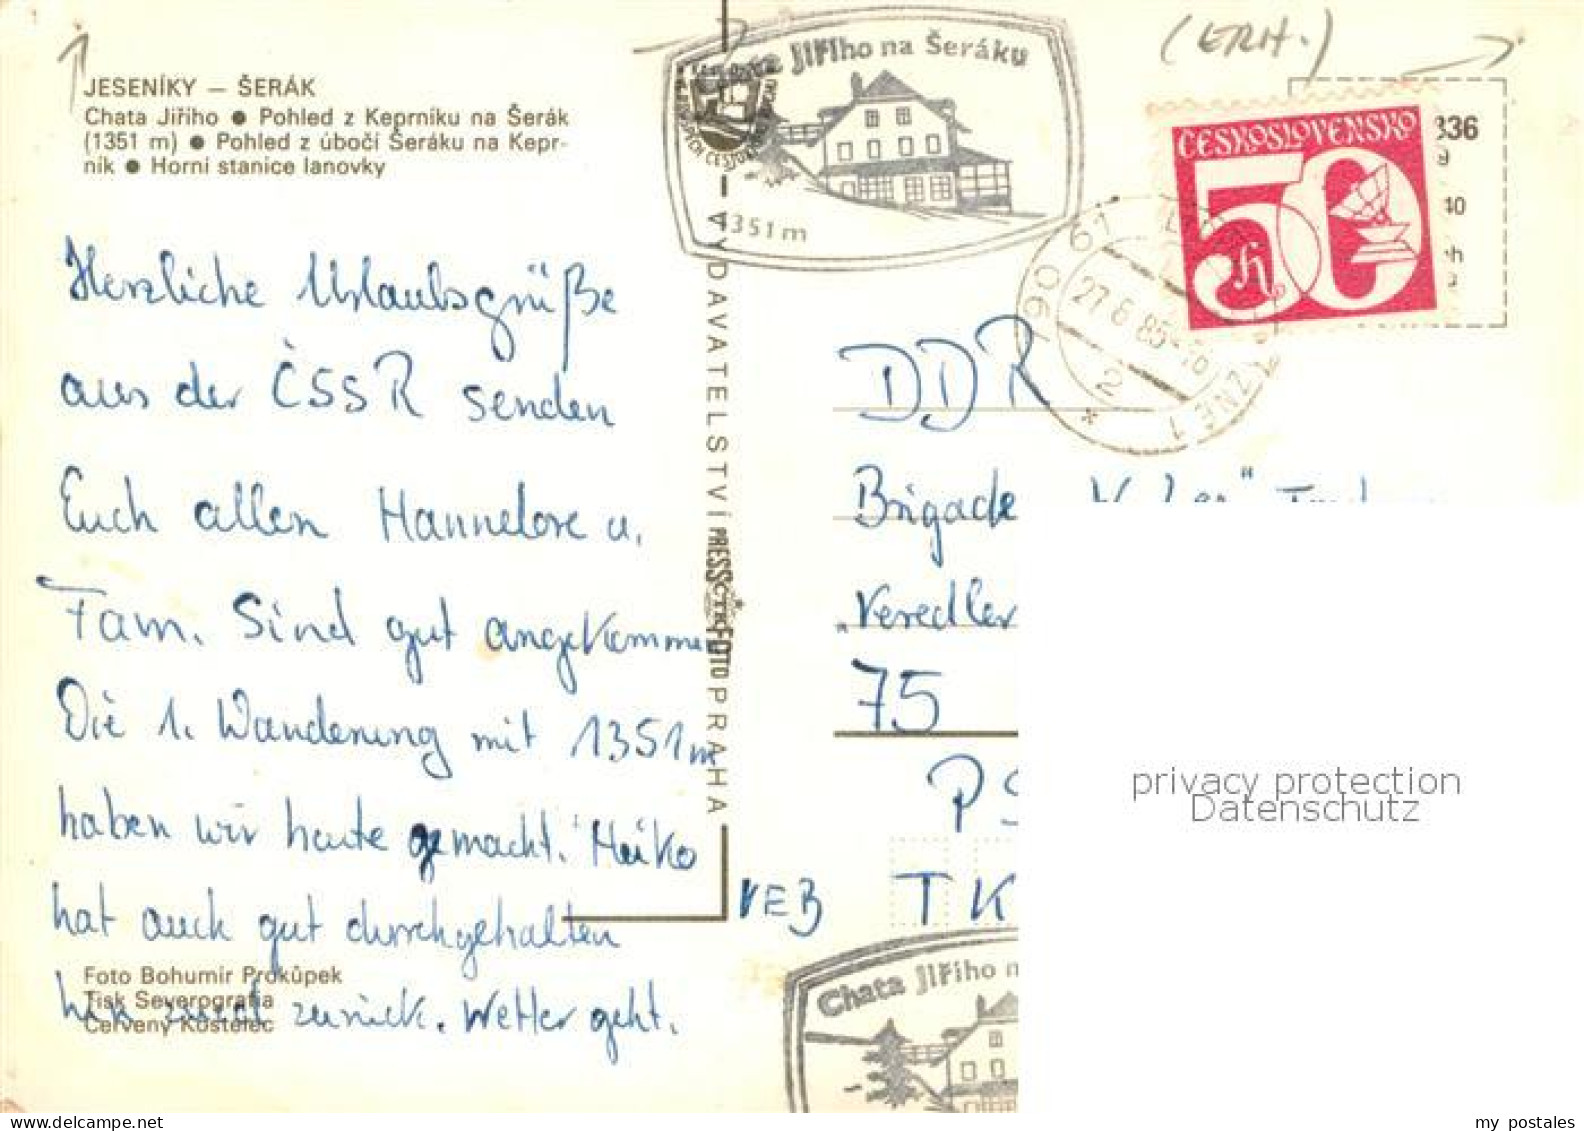 (ERH.)
JESENÍKY — ŠERÁK
Chata Jiřího ● Pohled z Keprníku na Šerák
(1351 m) ● Pohled z úbočí Šeráku na Kepr-
ník ● Horní stanice lanovky
Herzliche Urlaubsgrüße
aus der ČSSR senden
Euch allen Hannelore u.
Fam. Sind gut angekommen
Die 1. Wanderung mit 1351m
haben wir heute gemacht. Heiko
hat auch gut durchgehalten
hin und zurück. Wetter geht.
Foto Bohumír Prokůpek
Tisk Severografia
Červený Kostelec
VYDAVATELSTVÍ PRESSFOTO PRAHA
ČTK
Chata Jiřího na Šeráku
1351 m
ČESKOSLOVENSKO
50 h
336
9
40
790 61
27.6.85-16
2
*
DDR
Brigade
„Veredler
75
PS
VEB TK
Chata Jiřího n
privacy protection
Datenschutz
my postales